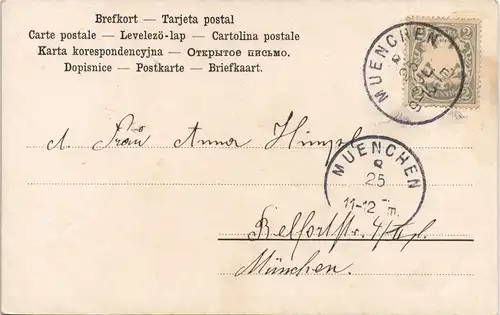 Brefkort — Tarjeta postal
Carte postale — Levelező-lap — Cartolina postale
Karta korespondencyjna — Открытое письмо.
Dopisnice — Postkarte — Briefkaart.
MUENCHEN
8
2
2
Anna
MUENCHEN
8
25
11-12 Vm.
Belfortstr.
München.